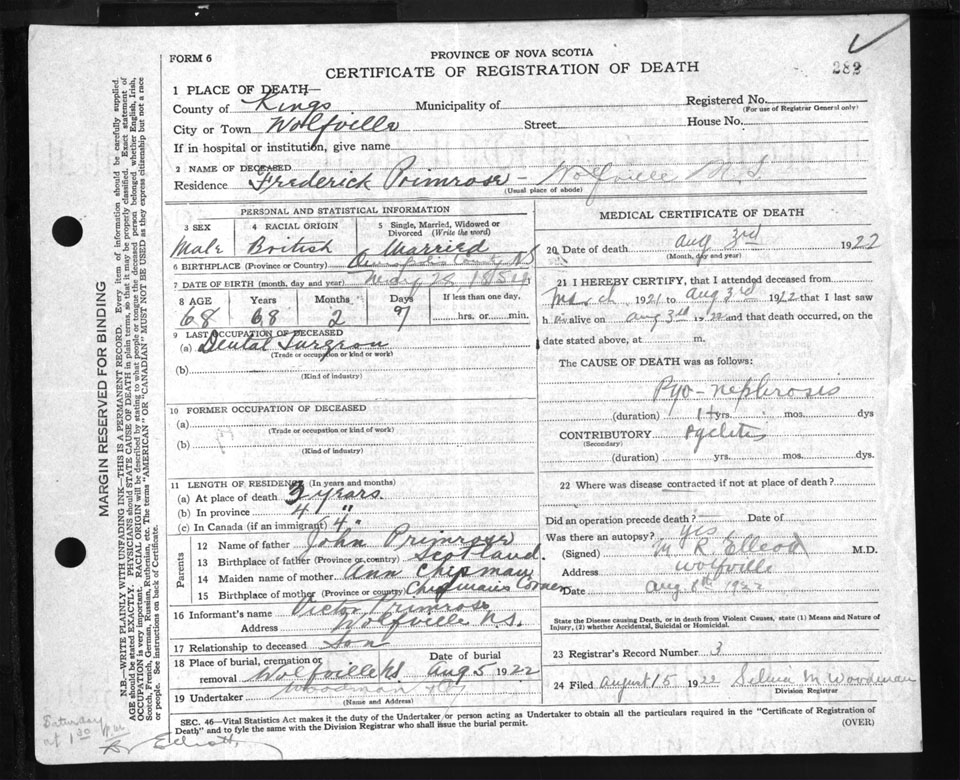 FORM 6
PROVINCE OF NOVA SCOTIA
CERTIFICATE OF REGISTRATION OF DEATH
282
1 PLACE OF DEATH—
County of Kings Municipality of Registered No.
(For use of Registrar General only)
City or Town Wolfville Street House No.
If in hospital or institution, give name
2 NAME OF DECEASED Frederick Primrose – Wolfville N.S.
Residence
(Usual place of abode)
PERSONAL AND STATISTICAL INFORMATION
3 SEX 4 RACIAL ORIGIN 5 Single, Married, Widowed or Divorced (Write the word)
Male British Married
6 BIRTHPLACE (Province or Country) Annapolis County NS
7 DATE OF BIRTH (month, day and year) May 28
8 AGE Years Months Days If less than one day,
68 68 2 hrs. or min.
9 LAST OCCUPATION OF DECEASED
(a) Dental Surgeon
(Trade or occupation or kind or work)
(b)
(Kind of industry)
10 FORMER OCCUPATION OF DECEASED
(a)
(Trade or occupation or kind of work)
(b)
(Kind of industry)
11 LENGTH OF RESIDENCE (In years and months)
(a) At place of death 3 years.
(b) In province 4 "
(c) In Canada (if an immigrant) 4 "
Parents
12 Name of father John Primrose
13 Birthplace of father (Province or country) Scotland.
14 Maiden name of mother Ann Chipman
15 Birthplace of mother (Province or country) Chipmans Corner
16 Informant's name Victor Primrose
Address Wolfville N.S.
17 Relationship to deceased Son
18 Place of burial, cremation or removal Wolfville NS Date of burial Aug 5 1922
19 Undertaker Woodman
(Name and Address)
MEDICAL CERTIFICATE OF DEATH
20 Date of death Aug 3rd 1922
(Month, day and year)
21 I HEREBY CERTIFY, that I attended deceased from
March 1921 to Aug 3rd 1922 that I last saw
him alive on Aug 3rd 1922 and that death occurred, on the
date stated above, at m.
The CAUSE OF DEATH was as follows:
Pyo-nephrosis
(duration) 1 yrs. mos. dys
CONTRIBUTORY Pyelitis
(Secondary)
(duration) yrs. mos. dys.
22 Where was disease contracted if not at place of death?
Did an operation precede death? — Date of
Was there an autopsy? Yes
(Signed) M. R. Elliott M.D.
Address Wolfville
Date Aug 1922
State the Disease causing Death, or in death from Violent Causes, state (1) Means and Nature of Injury, (2) whether Accidental, Suicidal or Homicidal.
23 Registrar's Record Number 3
24 Filed August 15 1922 Selina M Woodman
Division Registrar
SEC. 46—Vital Statistics Act makes it duty of the Undertaker or person acting as Undertaker to obtain all the particulars required in the "Certificate of Registration of
Death" and to fyle the same with the Division Registrar who shall issue the burial permit.
(OVER)
MARGIN RESERVED FOR BINDING
N.B.—WRITE PLAINLY WITH UNFADING INK—THIS IS A PERMANENT RECORD. Every item of information should be carefully supplied.
AGE should be stated EXACTLY. PHYSICIANS should STATE CAUSE OF DEATH in plain terms, so that it may be properly classified. Exact statement of
OCCUPATION is very important. RACIAL ORIGIN will be described by stating to what people or tongue the deceased person belonged whether English, Irish,
Scotch, French, German, Russian, Ruthenian, etc. The terms "AMERICAN" OR "CANADIAN" MUST NOT BE USED as they express citizenship but not a race
or people. See instructions on back of Certificate.
Saturday
at 1 30 P.M
Elliott